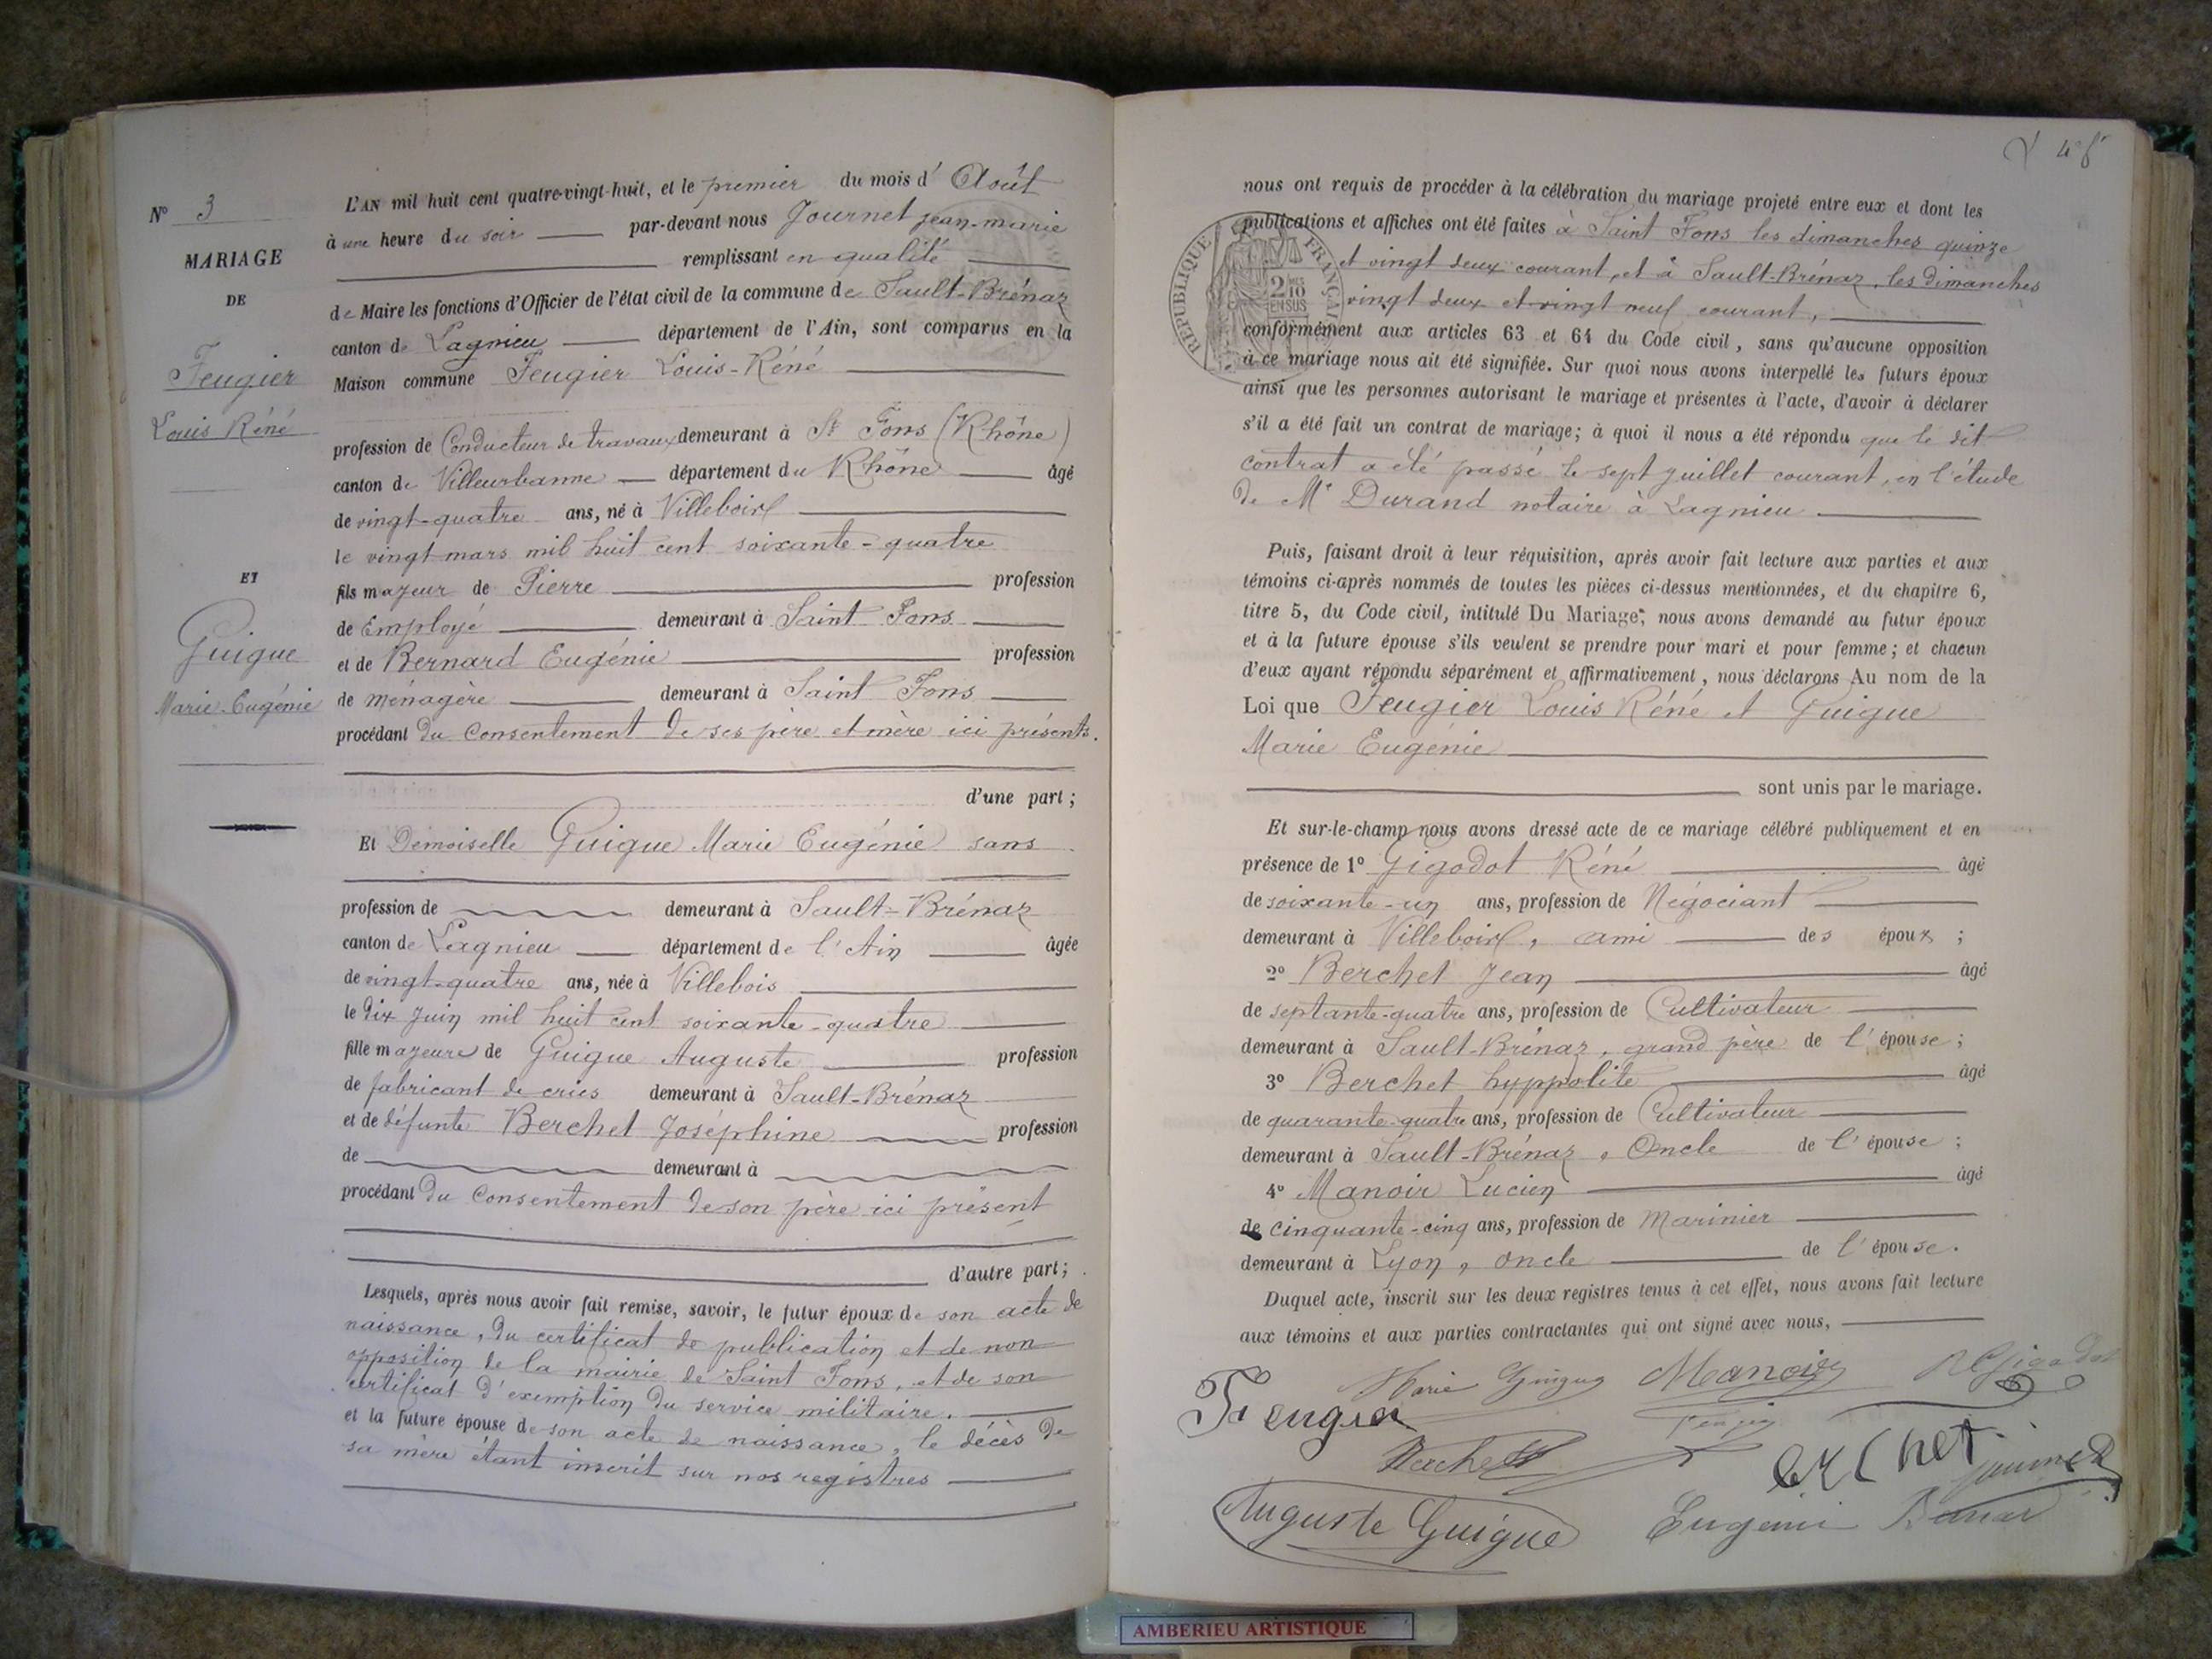 N° 3
MARIAGE
DE
Feugier
Louis Réné
ET
Guigue
Marie-Eugénie
L'AN mil huit cent quatre-vingt-huit, et le premier du mois d'Août
à une heure du soir par-devant nous Journet jean-marie
remplissant en qualité
de Maire les fonctions d'Officier de l'état civil de la commune de Sault-Brénaz
canton de Lagnieu département de l'Ain, sont comparus en la
Maison commune Feugier Louis-Réné
profession de Conducteur de travaux demeurant à St Fons (Rhône)
canton de Villeurbanne département du Rhône âgé
de vingt-quatre ans, né à Villebois
le vingt mars mil huit cent soixante-quatre
fils majeur de Pierre profession
de Employé demeurant à Saint Fons
et de Bernard Eugénie profession
de ménagère demeurant à Saint Fons
procédant du Consentement de ses père et mère ici présents.
d'une part ;
Et Demoiselle Guigue Marie Eugénie sans
profession de demeurant à Sault-Brénaz
canton de Lagnieu département de l'Ain âgée
de vingt-quatre ans, née à Villebois
le dix Juin mil huit cent soixante-quatre
fille majeure de Guigue Auguste profession
de fabricant de crics demeurant à Sault-Brénaz
et de défunte Berchet Joséphine profession
de demeurant à
procédant du Consentement de son père ici présent
d'autre part ;
Lesquels, après nous avoir fait remise, savoir, le futur époux de son acte de
naissance, du certificat de publication et de non
opposition de la mairie de Saint Fons, et de son
certificat d'exemption du service militaire.
et la future épouse de son acte de naissance, le décès de
sa mère étant inscrit sur nos registres
nous ont requis de procéder à la célébration du mariage projeté entre eux et dont les
publications et affiches ont été faites à Saint Fons les dimanches quinze
et vingt deux courant, et à Sault-Brénaz, les dimanches
vingt deux et vingt neuf courant,
conformément aux articles 63 et 64 du Code civil, sans qu'aucune opposition
à ce mariage nous ait été signifiée. Sur quoi nous avons interpellé les futurs époux
ainsi que les personnes autorisant le mariage et présentes à l'acte, d'avoir à déclarer
s'il a été fait un contrat de mariage ; à quoi il nous a été répondu que le dit
contrat a été passé le sept juillet courant, en l'étude
de Me Durand notaire à Lagnieu
Puis, faisant droit à leur réquisition, après avoir fait lecture aux parties et aux
témoins ci-après nommés de toutes les pièces ci-dessus mentionnées, et du chapitre 6,
titre 5, du Code civil, intitulé Du Mariage, nous avons demandé au futur époux
et à la future épouse s'ils veulent se prendre pour mari et pour femme ; et chacun
d'eux ayant répondu séparément et affirmativement, nous déclarons Au nom de la
Loi que Feugier Louis Réné et Guigue
Marie Eugénie
sont unis par le mariage.
Et sur-le-champ nous avons dressé acte de ce mariage célébré publiquement et en
présence de 1° Gigodot Réné âgé
de soixante-un ans, profession de Négociant
demeurant à Villebois, ami des époux ;
2° Berchet Jean âgé
de septante-quatre ans, profession de Cultivateur
demeurant à Sault-Brénaz, grand père de l'épouse ;
3° Berchet hyppolite âgé
de quarante-quatre ans, profession de Cultivateur
demeurant à Sault-Brénaz, Oncle de l'épouse ;
4° Manoir Lucien âgé
de cinquante-cinq ans, profession de Marinier
demeurant à Lyon, oncle de l'épouse.
Duquel acte, inscrit sur les deux registres tenus à cet effet, nous avons fait lecture
aux témoins et aux parties contractantes qui ont signé avec nous,
Feugier Marie Guigue Manoir RGigodot
erchet Journet
Auguste Guigue Eugénie Bernar
RÉPUBLIQUE FRANÇAISE
AMBERIEU ARTISTIQUE